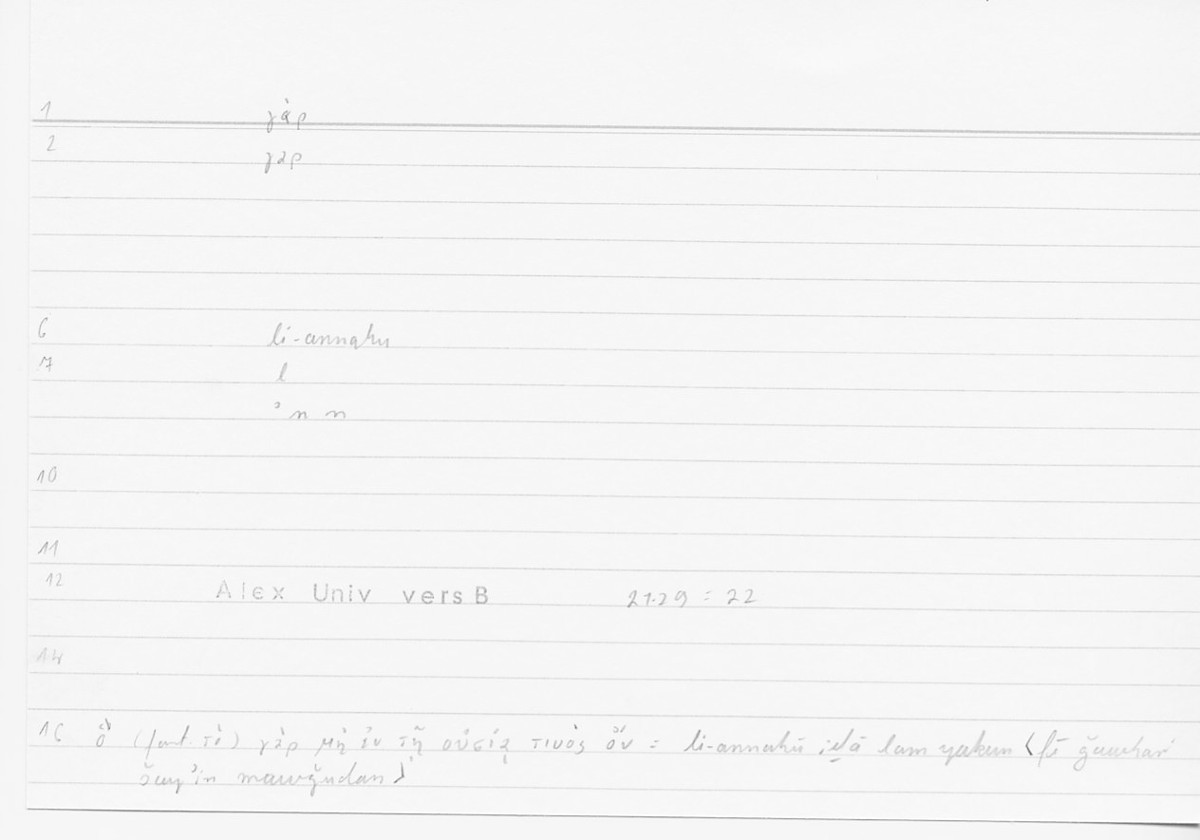 1 γὰρ
2 γαρ
6 li-annahu
7 l
ʾn n
10
11
12 Alex Univ vers B 21.29 = 22
14
16 ὃ (τὸ) γὰρ μὴ ἐν τῇ οὐσίᾳ τινὸς ὄν = li-annahū iḏā lam yakun ⟨fī ǧawhari
šayʾin mawǧūdan⟩